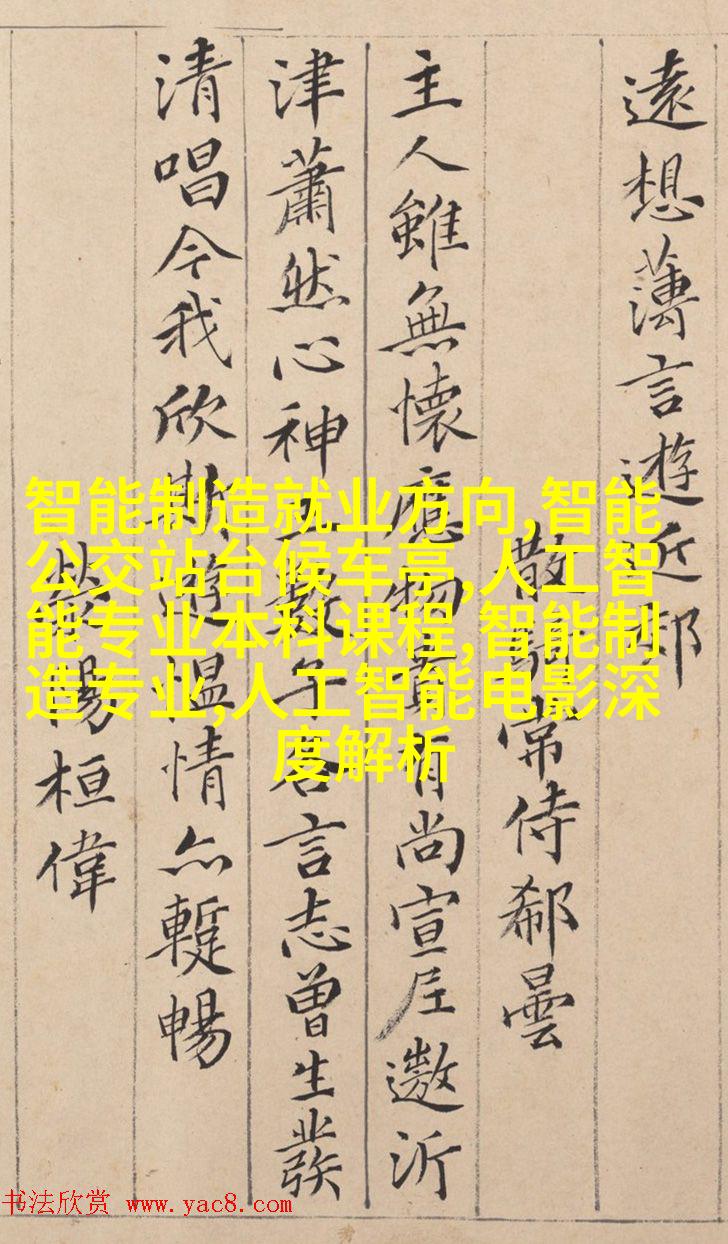 遠想薄言遊近郊
散騎常侍郗曇
主人雖無懷應物貴有尚宣尼遨沂
津蕭然心神王數子各言志曾生發
清唱今我欣斯遊慍情亦暫暢
陽桓偉
智能制造就业方向,智能
公交站台候车亭,人工智
能专业本科课程,智能制
造专业,人工智能电影深
度解析
书法欣赏 www.yac8.com